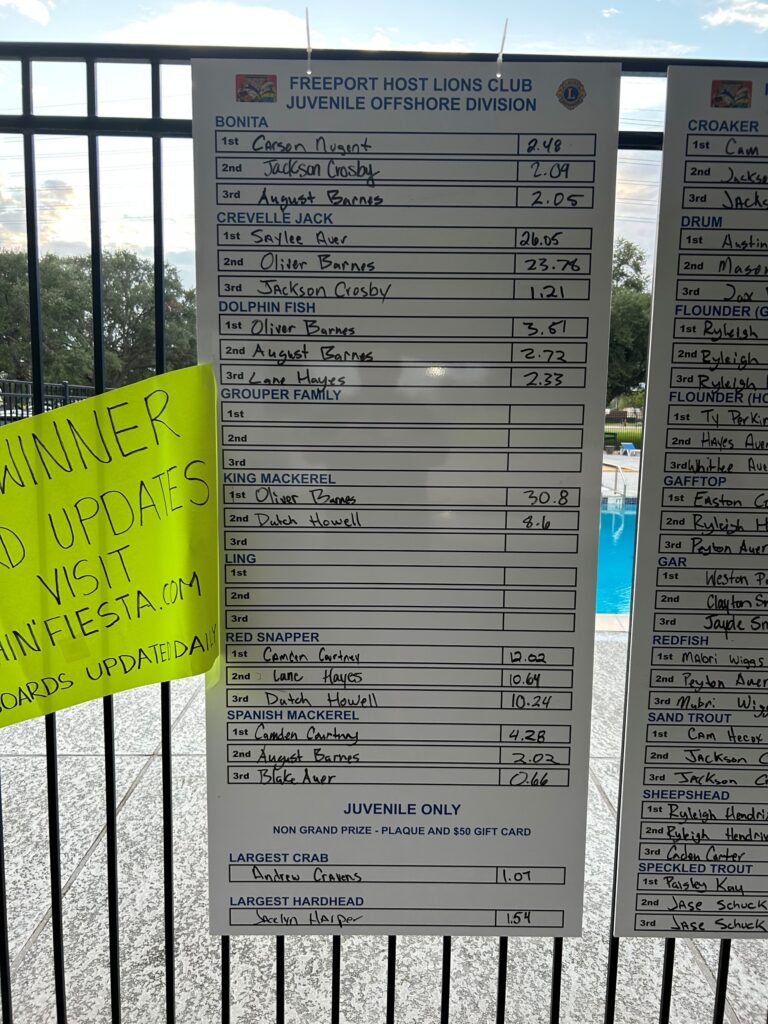 FREEPORT HOST LIONS CLUB
JUVENILE OFFSHORE DIVISION
BONITA
1st Carson Nugent 2.48
2nd Jackson Crosby 2.09
3rd August Barnes 2.05
CREVELLE JACK
1st Saylee Auer 26.05
2nd Oliver Barnes 23.78
3rd Jackson Crosby 1.21
DOLPHIN FISH
1st Oliver Barnes 3.51
2nd August Barnes 2.72
3rd Lane Hayes 2.33
GROUPER FAMILY
1st
2nd
3rd
KING MACKEREL
1st Oliver Barnes 30.8
2nd Dutch Howell 8.6
3rd
LING
1st
2nd
3rd
RED SNAPPER
1st Camden Courtney 12.02
2nd Lane Hayes 10.64
3rd Dutch Howell 10.24
SPANISH MACKEREL
1st Camden Courtney 4.28
2nd August Barnes 2.02
3rd Blake Auer 0.66
JUVENILE ONLY
NON GRAND PRIZE - PLAQUE AND $50 GIFT CARD
LARGEST CRAB
Andrew Cravens 1.07
LARGEST HARDHEAD
Jaclyn Harper 1.54
WINNER
D UPDATES
VISIT
HIN'FIESTA.COM
BOARDS UPDATED DAILY
CROAKER
1st Cam
2nd Jackso
3rd Jacks
DRUM
1st Austin
2nd Mason
3rd Jax
FLOUNDER (G
1st Ryleigh
2nd Ryleigh
3rd Ryleigh
FLOUNDER (HO
1st Ty Perkin
2nd Hayes Auer
3rd Whitlee Aue
GAFFTOP
1st Easton C
2nd Ryleigh H
3rd Peyton Auer
GAR
1st Weston P
2nd Clayton Sm
3rd Jayde Sm
REDFISH
1st Mabri Wiggs
2nd Peyton Auer
3rd Mabri Wigg
SAND TROUT
1st Cam Hecox
2nd Jackson C
3rd Jackson C
SHEEPSHEAD
1st Ryleigh Hendri
2nd Ryleigh Hendri
3rd Caden Carter
SPECKLED TROUT
1st Paisley Kay
2nd Jase Schuck
3rd Jase Schuck